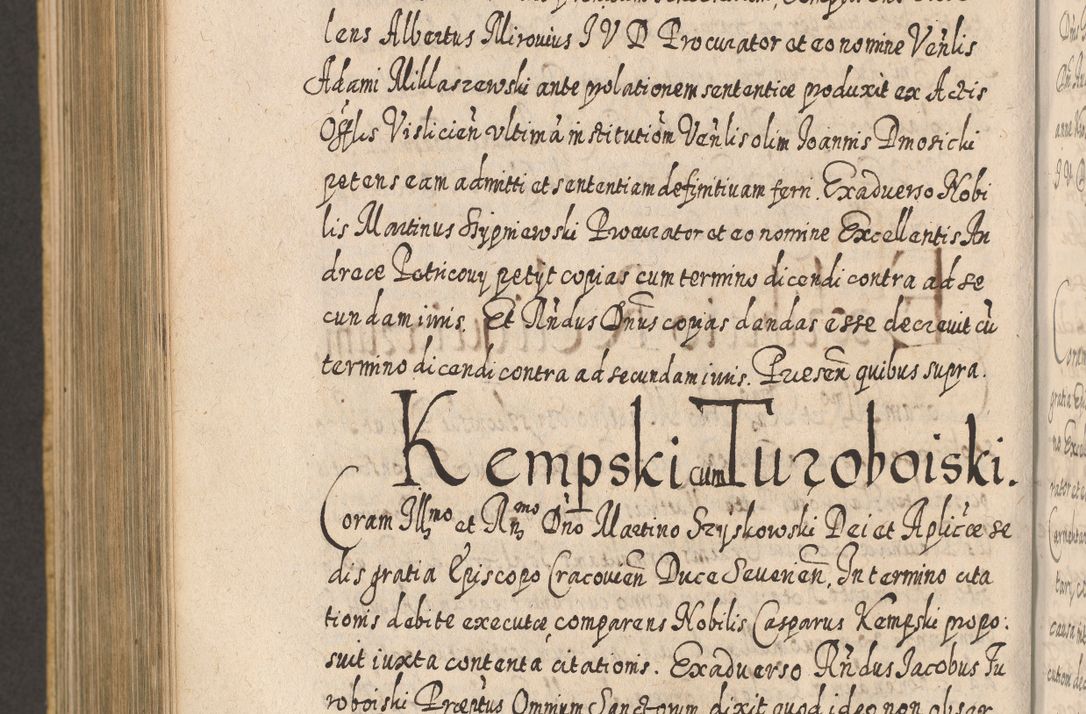 lens Albertus Mirovius I V D Procurator et eo nomine Veñlis
Adami Miklaszewski ante prolationem sententiæ produxit ex Actis
Offlis Vislicień ultimã institutiõm Veñlis olim Joannis Dmosicki
petens eam admitti et sententiam definitiuam ferri. Exaduerso Nobi
lis Martinus Szypniewski Procurator et eo nomine Excellentis An
dreæ Petricouy petyt copias cum termino dicendi contra ad se
cundam iuris. Et Rñdus Dnus copias dandas esse decreuit cũ
termino dicendi contra ad secundam iuris. Præsen̄ quibus supra.
Kempski cum Turoboiski.
Coram Illmo et Rmo Dño Martino Szyskowski Dei et Aplicæ se
dis gratia Episcopo Cracovien̄ Duce Severien̄, In termino cita
tionis debite executæ comparens Nobilis Casparus Kempski propo:
suit iuxta contenta citationis. Exaduerso Rñdus Jacobus Tu
roboiski Præntus Omnium Sanctorum dixit quod ideo non obser